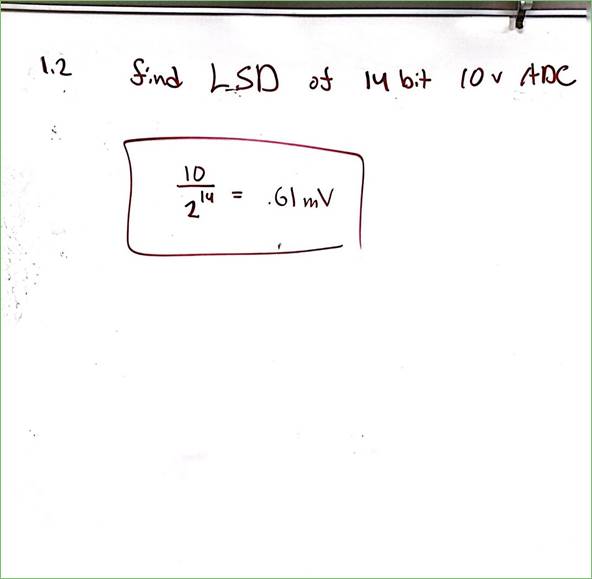 1.2 find LSD of 14 bit 10v ADC
10
2^14 = .61mV